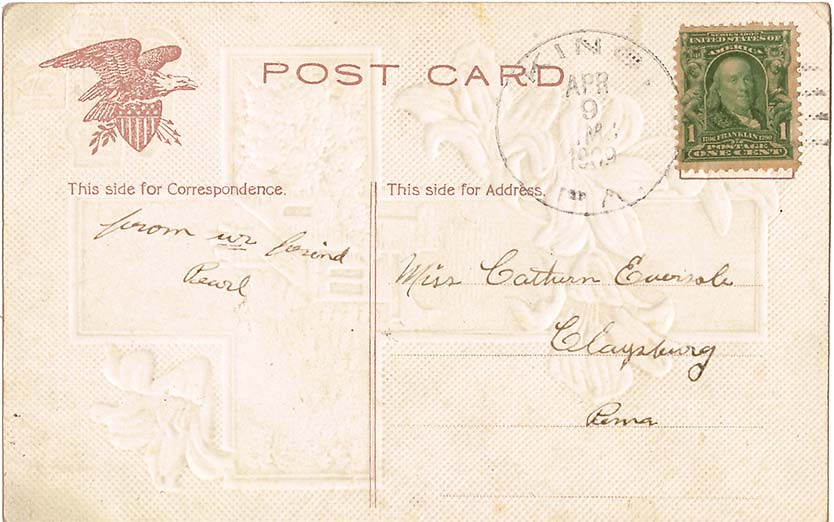 POST CARD
KING
APR
9
1909
PA.
SERIES 1902
UNITED STATES OF
AMERICA
1 1706 FRANKLIN 1790 1
POSTAGE
ONE CENT
This side for Correspondence.
This side for Address.
from ur frind
Pearl
Miss Cathern Eversole
Claysburg
Penna